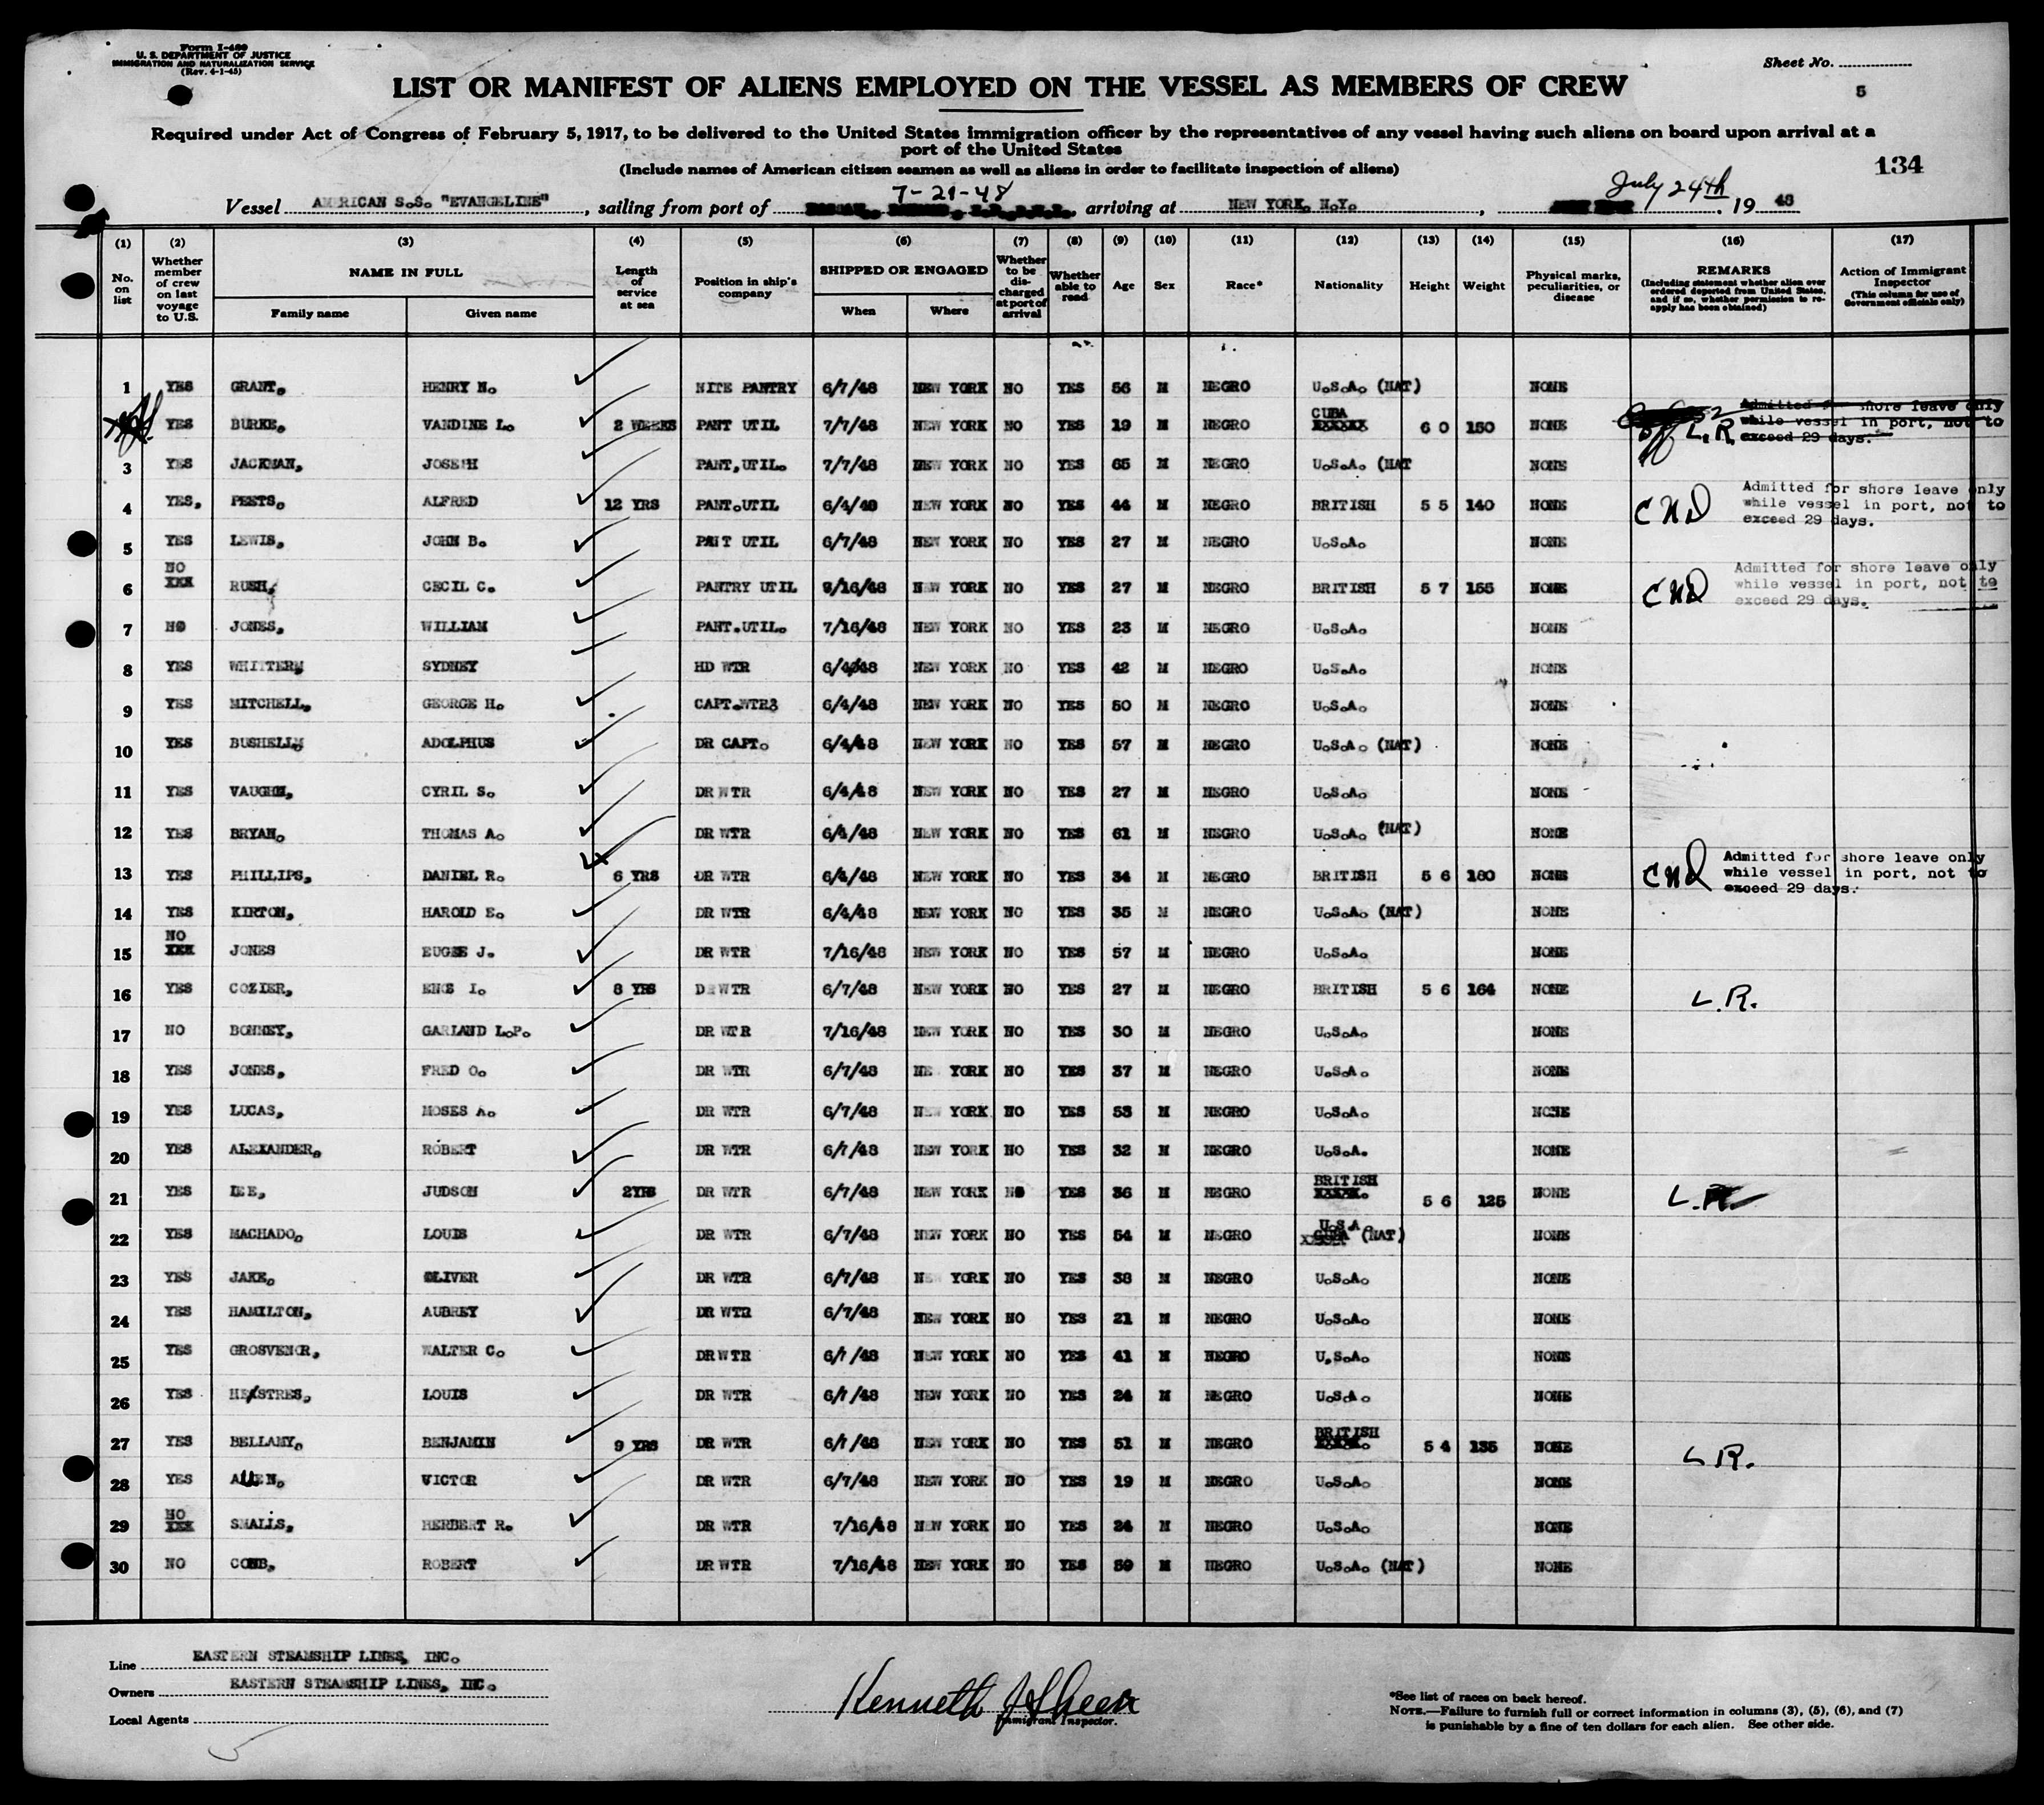 Form I-489
U. S. DEPARTMENT OF JUSTICE
IMMIGRATION AND NATURALIZATION SERVICE
(Rev. 4-1-45)
Sheet No.
LIST OR MANIFEST OF ALIENS EMPLOYED ON THE VESSEL AS MEMBERS OF CREW
5
Required under Act of Congress of February 5, 1917, to be delivered to the United States immigration officer by the representatives of any vessel having such aliens on board upon arrival at a
port of the United States
(Include names of American citizen seamen as well as aliens in order to facilitate inspection of aliens)
134
7-21-48 July 24th
Vessel AMERICAN S.S. "EVANGELINE", sailing from port of , arriving at NEW YORK, N.Y., , 19 48
(1) (2) (3) (4) (5) (6) (7) (8) (9) (10) (11) (12) (13) (14) (15) (16) (17)
No. on list Whether member of crew on last voyage to U.S. NAME IN FULL Family name Given name Length of service at sea Position in ship's company SHIPPED OR ENGAGED When Where Whether to be discharged at port of arrival Whether able to read Age Sex Race* Nationality Height Weight Physical marks, peculiarities, or disease REMARKS (Including statement whether alien ever ordered deported from United States, and if so, whether permission to reapply has been obtained) Action of Immigrant Inspector (This column for use of Government officials only)
1 YES GRANT, HENRY N. NITE PANTRY 6/7/48 NEW YORK NO YES 56 M NEGRO U.S.A. (NAT) NONE
YES BURKE, VANDINE L. 2 WEEKS PANT UTIL 7/7/48 NEW YORK NO YES 19 M NEGRO CUBA XXXXXX 6 0 150 NONE L.R. Admitted for shore leave only while vessel in port, not to exceed 29 days.
3 YES JACKMAN, JOSEPH PANT,UTIL. 7/7/48 NEW YORK NO YES 65 M NEGRO U.S.A. (NAT NONE
4 YES, PEETS, ALFRED 12 YRS PANT.UTIL 6/4/48 NEW YORK NO YES 44 M NEGRO BRITISH 5 5 140 NONE CND Admitted for shore leave only while vessel in port, not to exceed 29 days.
5 YES LEWIS, JOHN B. PANT UTIL 6/7/48 NEW YORK NO YES 27 M NEGRO U.S.A. NONE
6 NO XXX RUSH, CECIL C. PANTRY UTIL /16/48 NEW YORK NO YES 27 M NEGRO BRITISH 5 7 155 NONE CND Admitted for shore leave only while vessel in port, not to exceed 29 days.
7 NO JONES, WILLIAM PANT.UTIL. 7/16/48 NEW YORK NO YES 23 M NEGRO U.S.A. NONE
8 YES WHITTERM SYDNEY HD WTR 6/4/48 NEW YORK NO YES 42 M NEGRO U.S.A. NONE
9 YES MITCHELL, GEORGE H. CAPT.WTR3 6/4/48 NEW YORK NO YES 50 M NEGRO U.S.A. NONE
10 YES BUSHELLM ADOLPHUS DR CAPT. 6/4/48 NEW YORK NO YES 57 M NEGRO U.S.A. (NAT) NONE
11 YES VAUGHN, CYRIL S. DR WTR 6/4/48 NEW YORK NO YES 27 M NEGRO U.S.A. NONE
12 YES BRYAN, THOMAS A. DR WTR 6/4/48 NEW YORK NO YES 61 M NEGRO U.S.A. (NAT) NONE
13 YES PHILLIPS, DANIEL R. 6 YRS DR WTR 6/4/48 NEW YORK NO YES 34 M NEGRO BRITISH 5 6 180 NONE CND Admitted for shore leave only while vessel in port, not to exceed 29 days.
14 YES KIRTON, HAROLD E. DR WTR 6/4/48 NEW YORK NO YES 35 M NEGRO U.S.A. (NAT) NONE
15 NO XXX JONES EUGEE J. DR WTR 7/16/48 NEW YORK NO YES 57 M NEGRO U.S.A. NONE
16 YES COZIER, ENOS I. 8 YRS DR WTR 6/7/48 NEW YORK NO YES 27 M NEGRO BRITISH 5 6 164 NONE L.R.
17 NO BONNEY, GARLAND L.P. DR WTR 7/16/48 NEW YORK NO YES 30 M NEGRO U.S.A. NONE
18 YES JONES, FRED O. DR WTR 6/7/48 NEW YORK NO YES 37 M NEGRO U.S.A. NONE
19 YES LUCAS, MOSES A. DR WTR 6/7/48 NEW YORK NO YES 53 M NEGRO U.S.A. NONE
20 YES ALEXANDER, ROBERT DR WTR 6/7/48 NEW YORK NO YES 32 M NEGRO U.S.A. NONE
21 YES LEE, JUDSON 2YRS DR WTR 6/7/48 NEW YORK NO YES 36 M NEGRO BRITISH XXXXX. 5 6 125 NONE L.R.
22 YES MACHADO, LOUIS DR WTR 6/7/48 NEW YORK NO YES 54 M NEGRO U.S.A. CUBA (NAT) NONE
23 YES JAKE, OLIVER DR WTR 6/7/48 NEW YORK NO YES 38 M NEGRO U.S.A. NONE
24 YES HAMILTON, AUBREY DR WTR 6/7/48 NEW YORK NO YES 21 M NEGRO U.S.A. NONE
25 YES GROSVENOR, WALTER C. DR WTR 6/7/48 NEW YORK NO YES 41 M NEGRO U.S.A. NONE
26 YES HE/STRES, LOUIS DR WTR 6/7/48 NEW YORK NO YES 24 M NEGRO U.S.A. NONE
27 YES BELLAMY, BENJAMIN 9 YRS DR WTR 6/7/48 NEW YORK NO YES 51 M NEGRO BRITISH XXXXX. 5 4 135 NONE L.R.
28 YES ALLEN, VICTOR DR WTR 6/7/48 NEW YORK NO YES 19 M NEGRO U.S.A. NONE
29 NO XXX SMALLS, HERBERT R. DR WTR 7/16/48 NEW YORK NO YES 24 M NEGRO U.S.A. NONE
30 NO COMB, ROBERT DR WTR 7/16/48 NEW YORK NO YES 59 M NEGRO U.S.A. (NAT) NONE
Line EASTERN STEAMSHIP LINES, INC.
Owners EASTERN STEAMSHIP LINES, INC.
Local Agents
Kenneth J Sheen
Immigrant Inspector.
*See list of races on back hereof.
NOTE.—Failure to furnish full or correct information in columns (3), (5), (6), and (7)
is punishable by a fine of ten dollars for each alien. See other side.